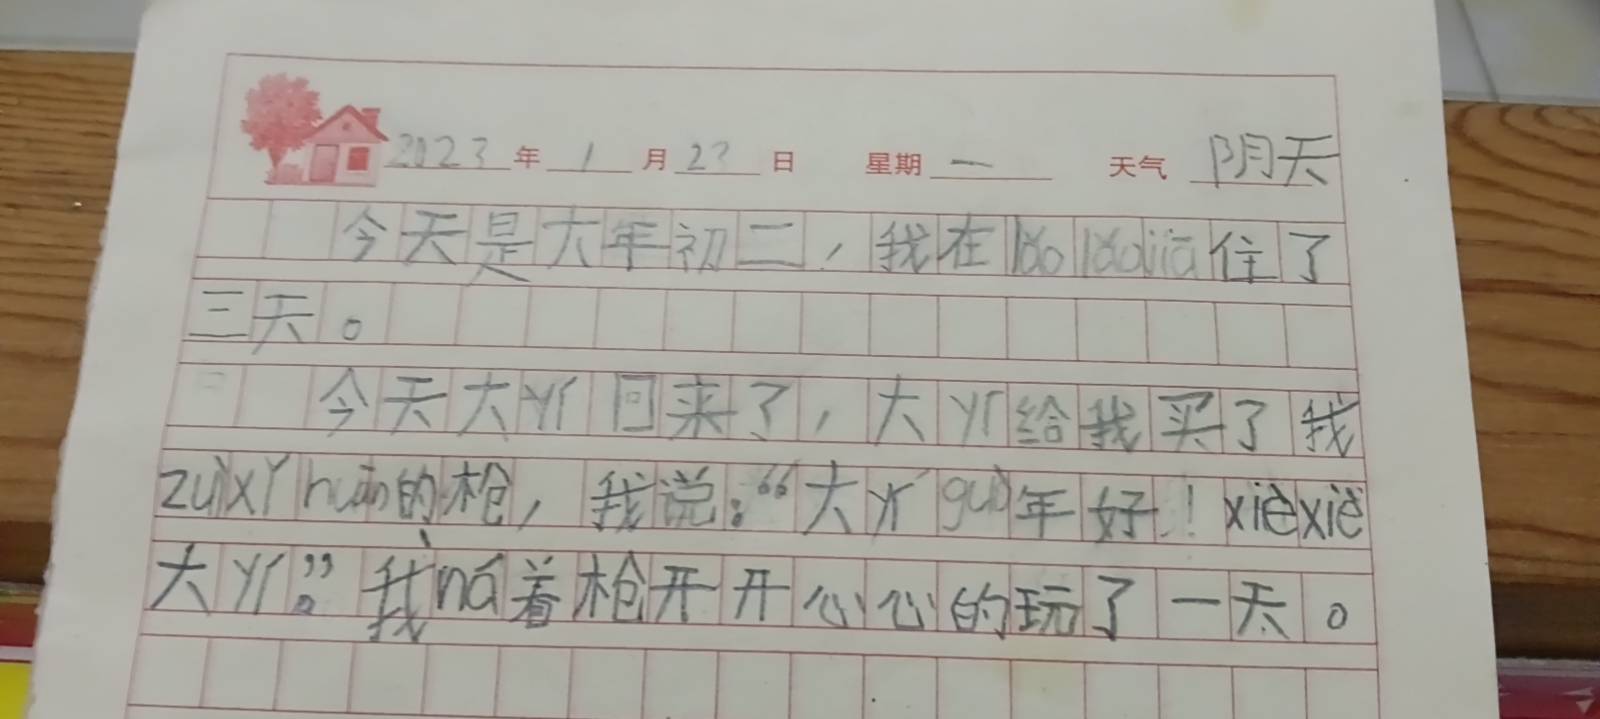 2023年1月23日 星期一 天气 阴天
今天是大年初二，我在lǎo lǎojiā住了
三天。
今天大丫回来了，大丫给我买了我
zuìxǐhuān的枪，我说：“大丫guò年好！xièxiè
大丫”。我ná着枪开开心心的玩了一天。